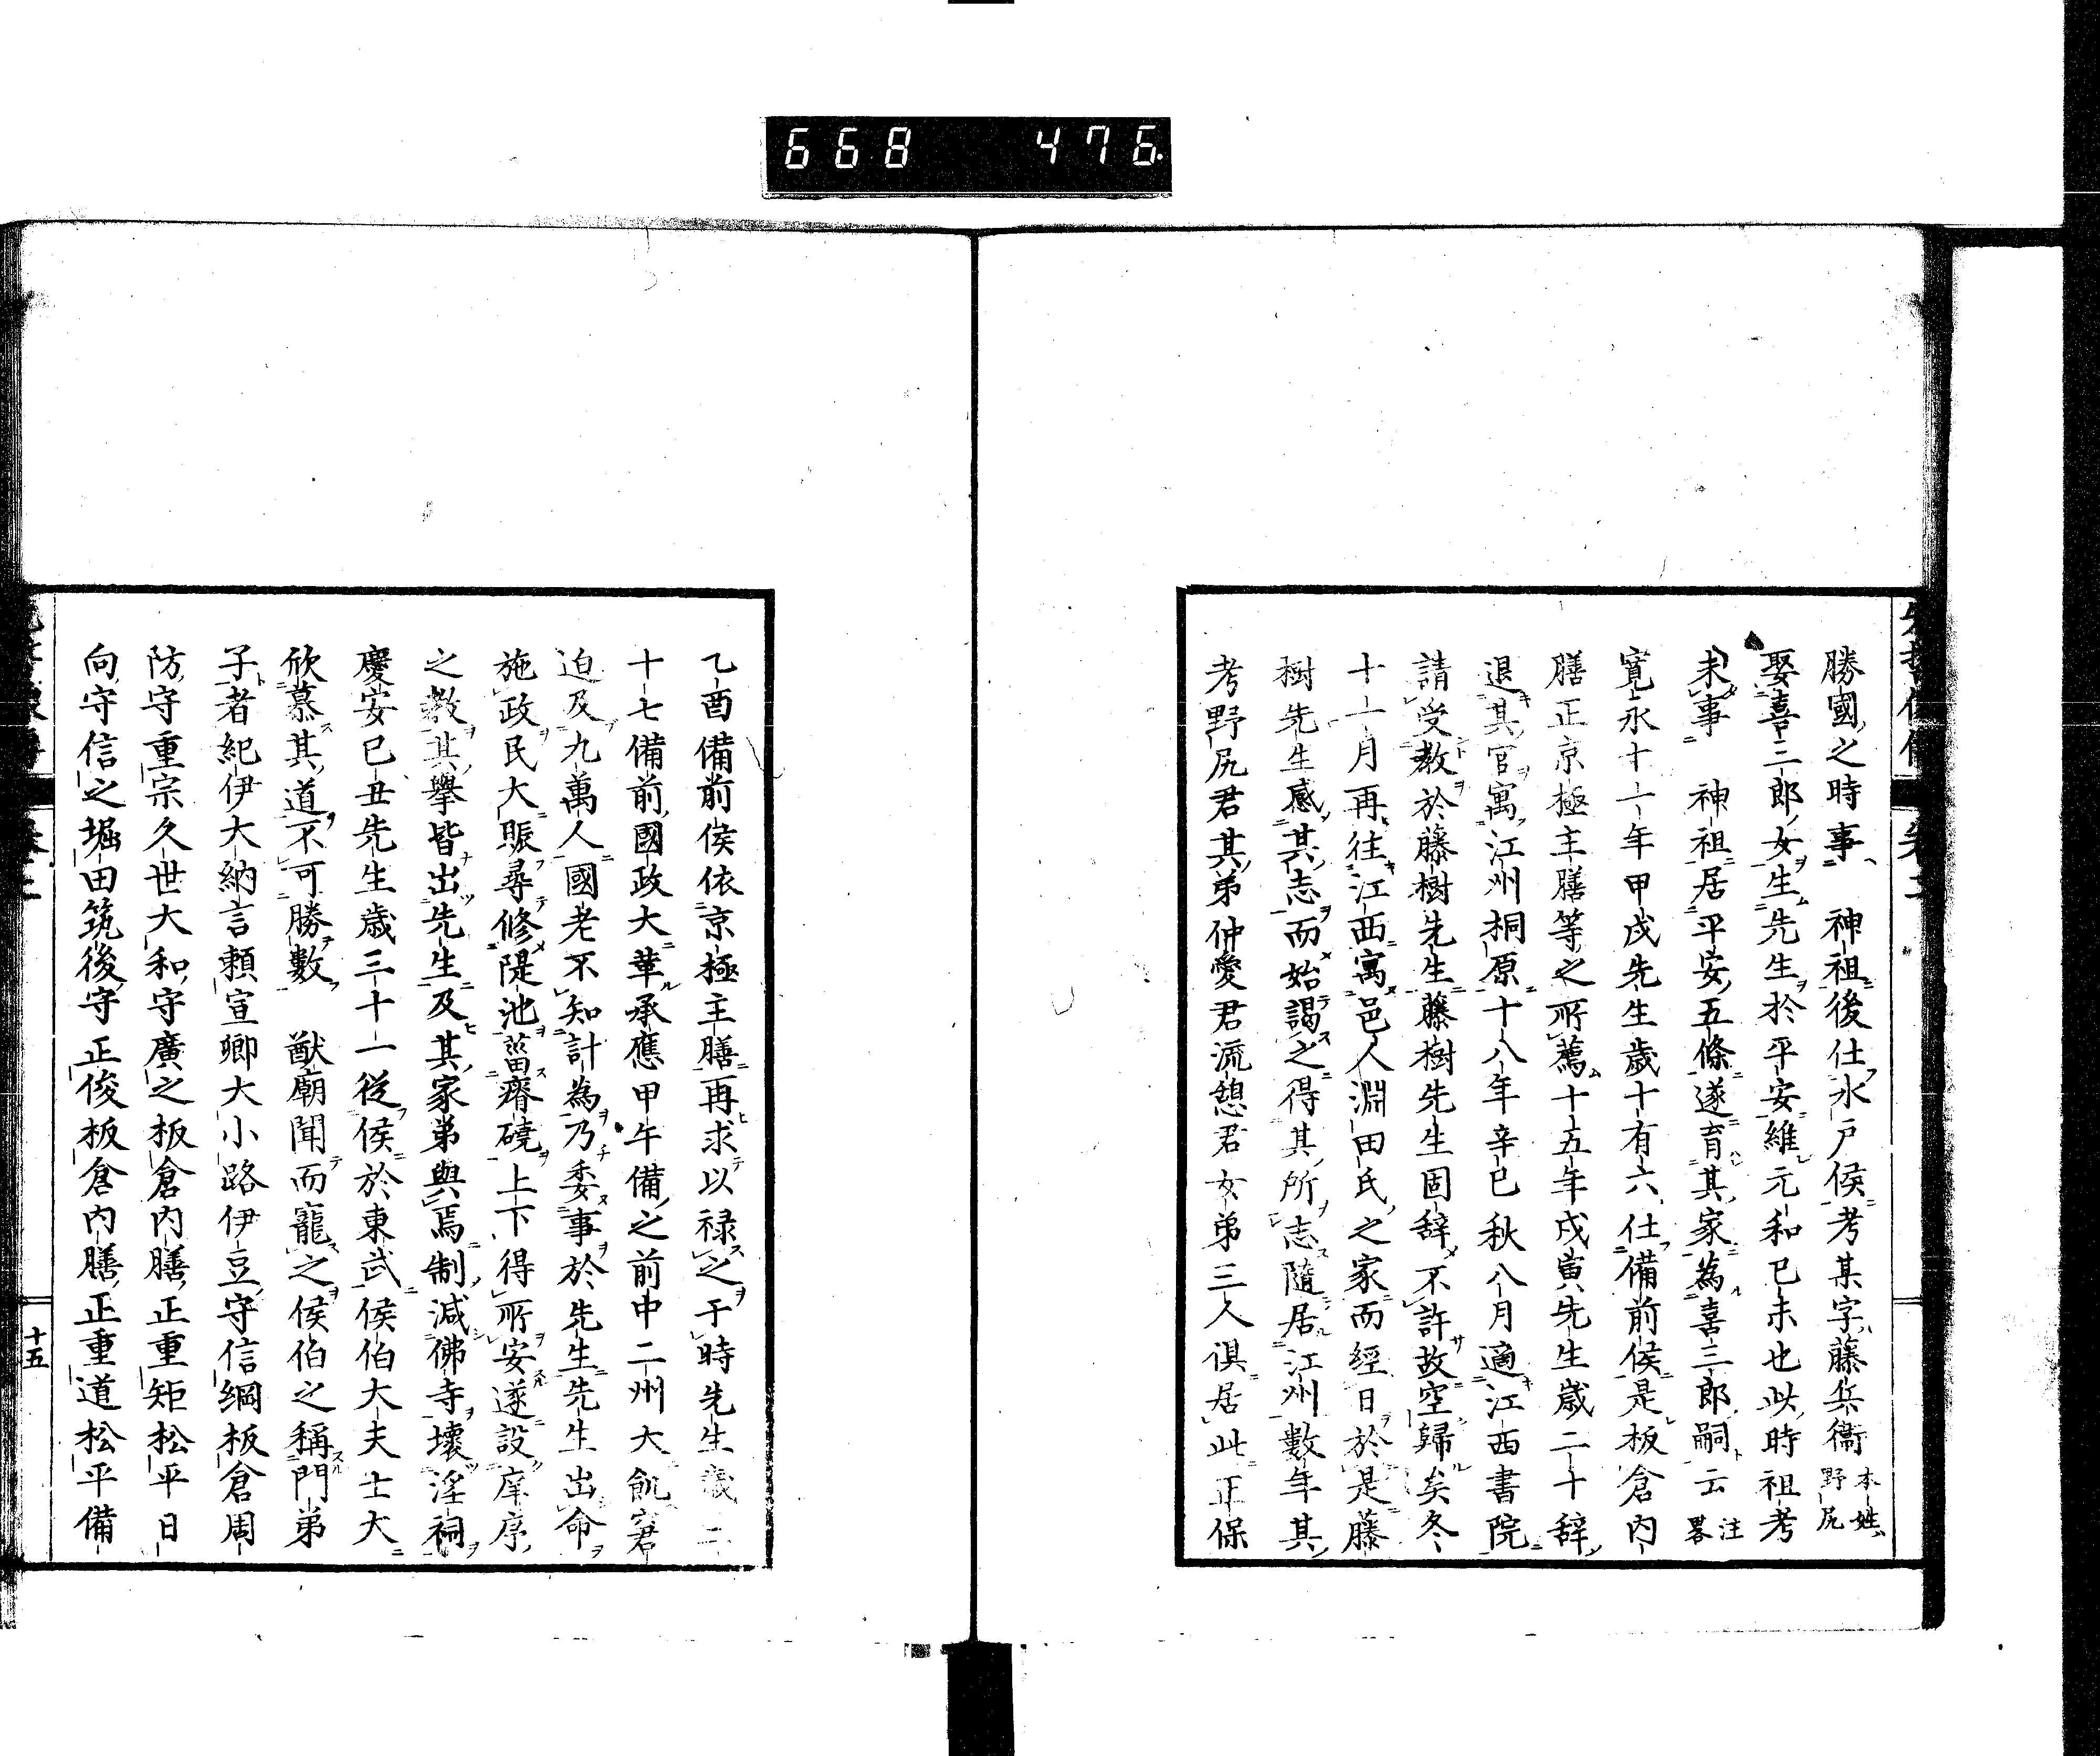 668 476
勝國之時事 神祖後仕水戸侯考某字藤兵衞本姓野尻
娶喜三郎女生先生於平安維元和已未也此時祖考
未事 神祖居平安五條遂育其家為喜三郎嗣云注畧
寛永十一年甲戌先生歳十有六仕備前侯是板倉内
膳正京極主膳等之所薦十五年戊寅先生歳二十辞
退其官寓江州桐原十八年辛巳秋八月適江西書院
請受教於藤樹先生藤樹先生固辞不許故空歸矣冬
十一月再往江西寓邑人淵田氏之家而經日於是藤
樹先生感其志而始謁之得其所志隨居江州數年其
考野尻君其弟仲愛君流憩君女弟三人倶居此正保
乙酉備前侯依京極主膳再求以禄之于時先生歳二
十七備前國政大革承應甲午備之前中二州大飢窘
迫及九萬人國老不知計為乃委事於先生先生出命
施政民大賑尋修隄池菑瘠磽上下得所安遂設庠序
之教其擧皆出先生及其家弟與焉制減佛寺壞淫祠
慶安已丑先生歳三十一從侯於東武侯伯大夫士大
欣慕其道不可勝數 猷廟聞而寵之侯伯之稱門弟
子者紀伊大納言頼宣卿大小路伊豆守信綱板倉周
防守重宗久世大和守廣之板倉内膳正重矩松平日
向守信之堀田筑後守正俊板倉内膳正重道松平備
十五